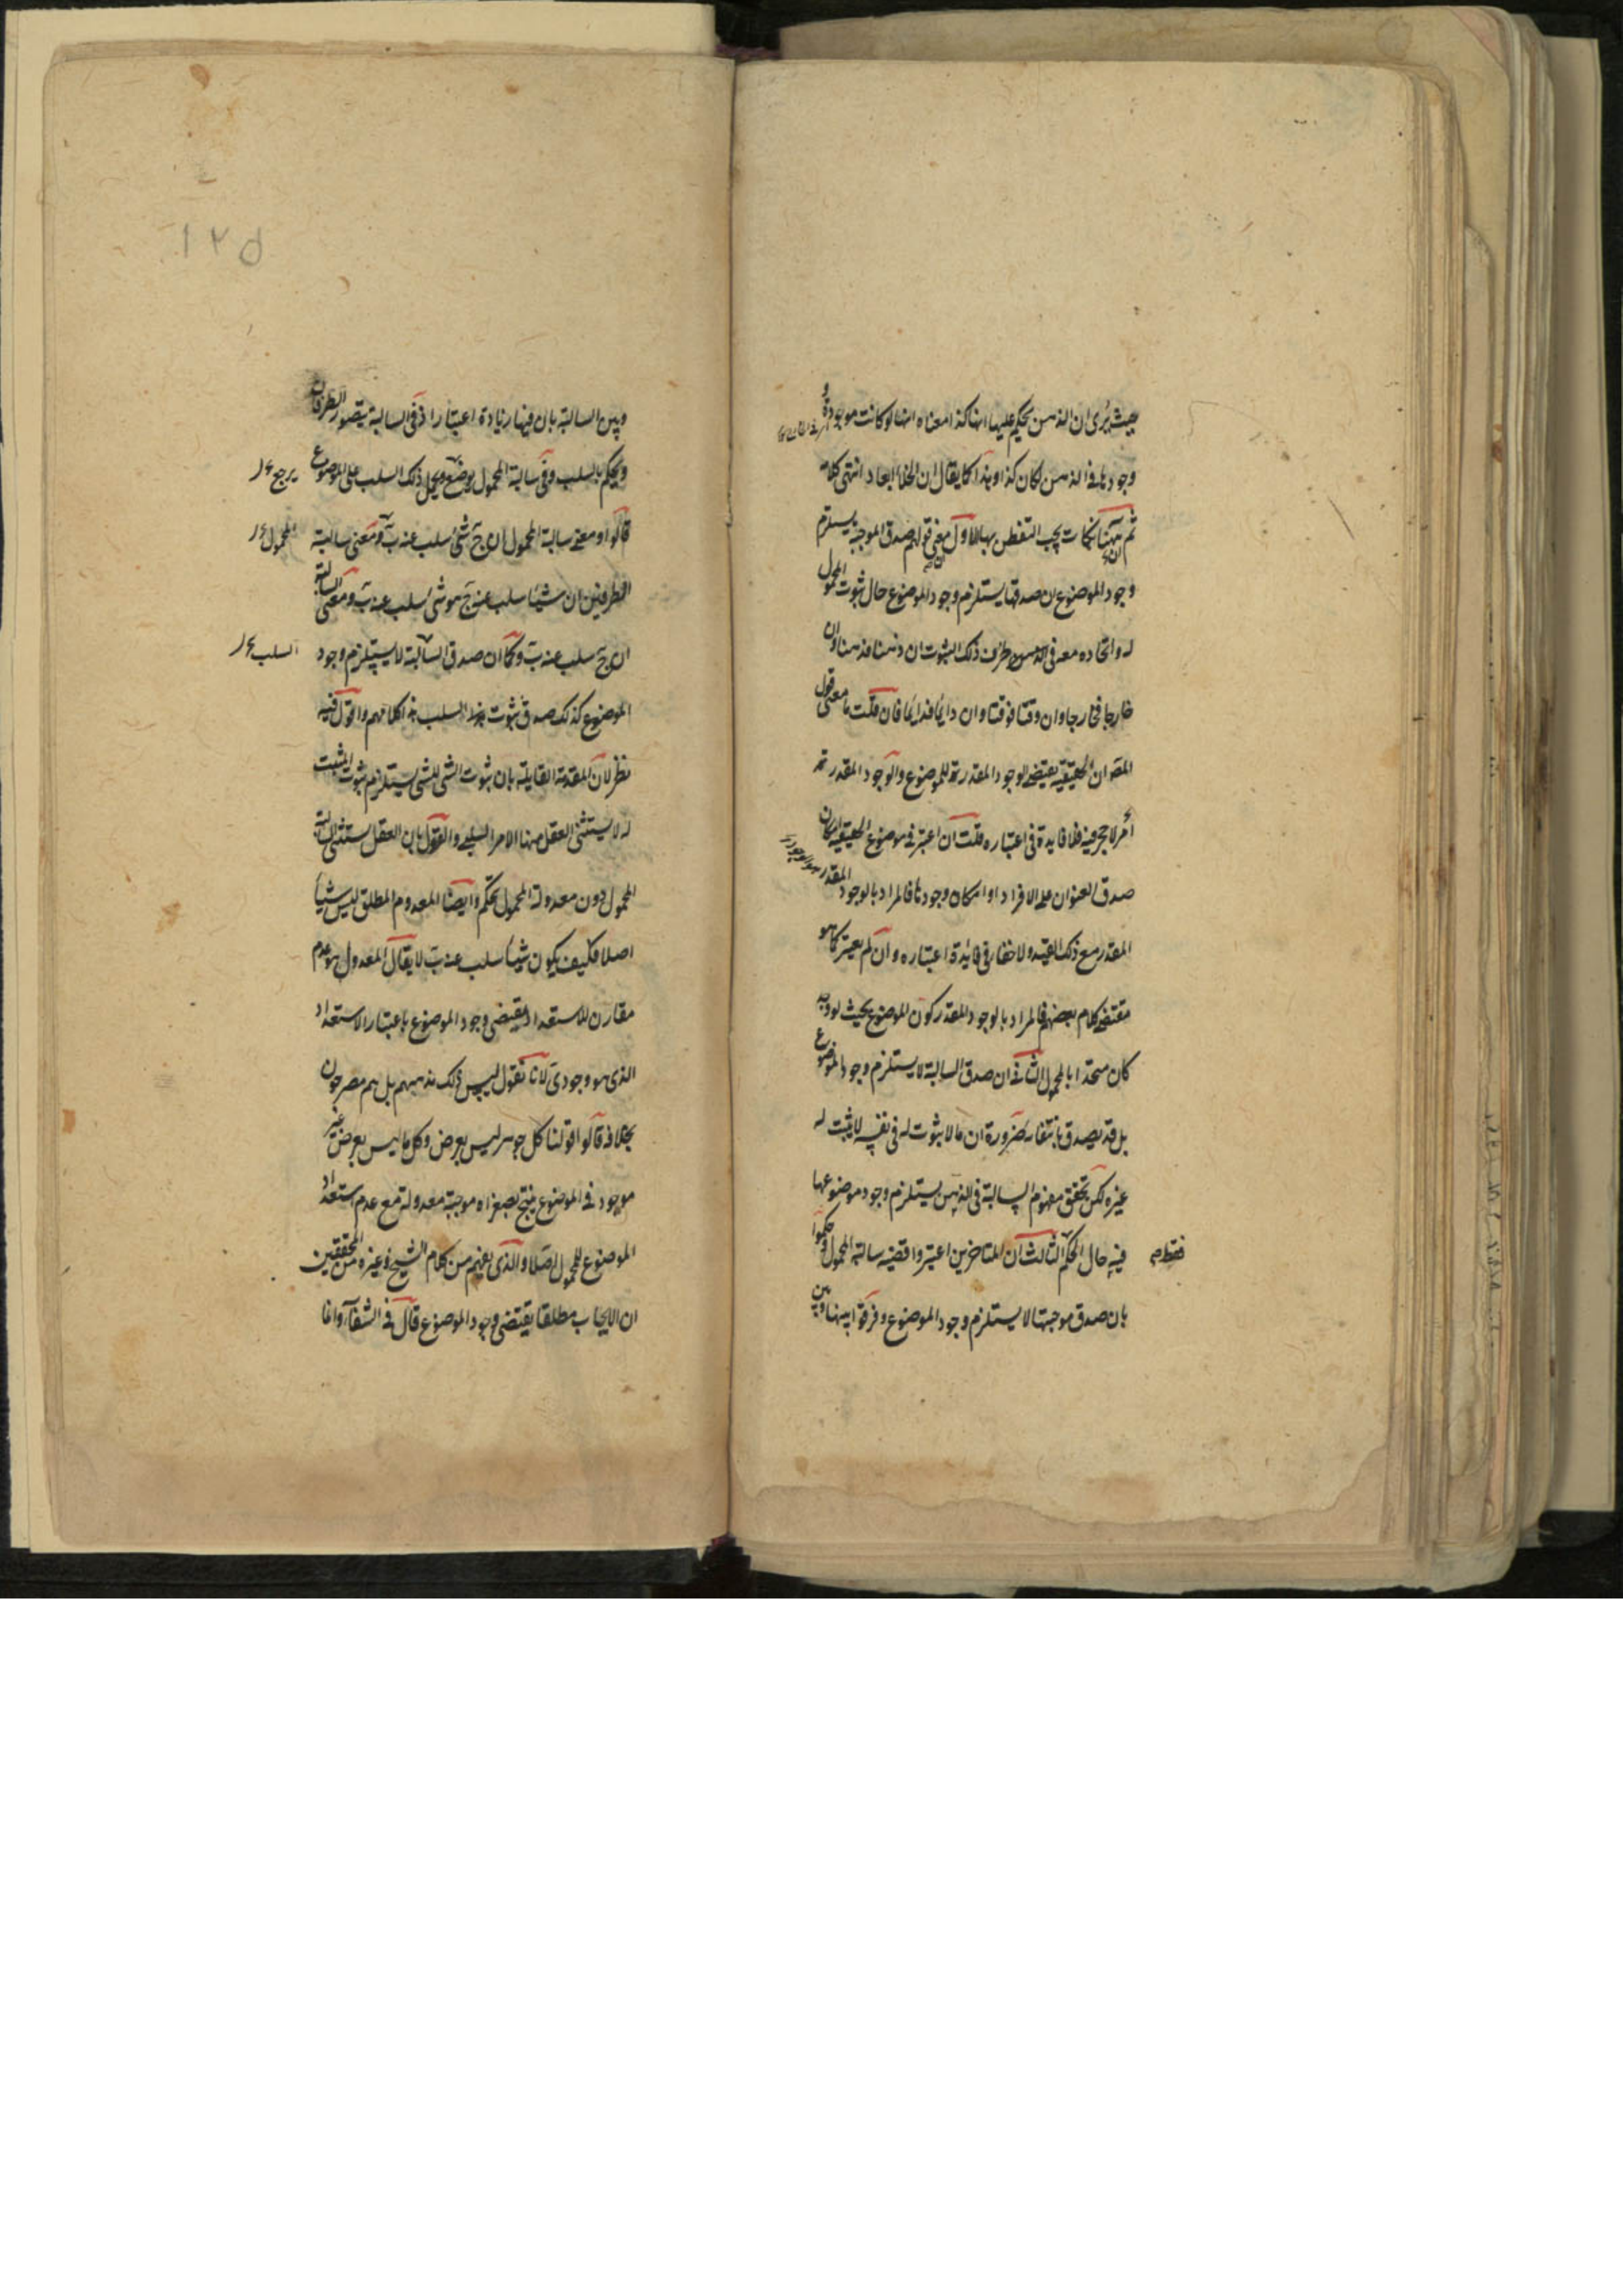 حيث يرى ان الذهن يحكم عليها انها كذا معناه انها لو كانت موجودة و
وجودها فى الذهن لكان كذا وهذا كما يقال ان الخلاء ابعاد انتهى كلامه
ثم ههنا نكات يجب التفطن بها الاول معنى قولهم صدق الموجبة يستلزم
وجود الموضوع ان صدقها يستلزم وجود الموضوع حال ثبوت المحمول
له واتحاده معه فى ظرف ذلك الثبوت ان ذهنا فذهنا وان
خارجا فخارجا وان وقتا فوقتا وان دايما فدايما فان قلت ما معنى قول
المص ان الحقيقية يقتضى الوجود المقدر للموضوع والوجود المقدر
أمر لا حجر فيه فلا فايدة فى اعتباره قلت ان اعتبر فى موضوع الحقيقية امكان
صدق العنوان على الافراد او امكان وجودها فالمراد بالوجود المقدر هو الوجود
المقدر مع ذلك القيد ولا خفاء فى فايدة اعتباره وان لم يعتبر كما هو
مقتضى كلام بعضهم فالمراد بالوجود المقدر كون الموضوع بحيث لو وجد
كان متحدا بالمحمول الثانى ان صدق السالبة لا يستلزم وجود الموضوع
بل قد يصدق بانتفائه ضرورة ان ما لا ثبوت له فى نفسه لا يثبت له
غيره لكن تحقق مفهوم السالبة فى الذهن يستلزم وجود موضوعها
فيه حال الحكم فقط الثالث ان المتاخرين اعتبروا قضية سالبة المحمول وحكموا
بان صدق موجبتها لا يستلزم وجود الموضوع وفرقوا بينها وبين
١٢٥
وبين السالبة بان فيها زيادة اعتبار اذ فى السالبة يتصور الطرفان
ويحكم بالسلب وفى سالبة المحمول يرجع ويحمل ذلك السلب على الموضوع
يرجع
قالوا ومعنى سالبة المحمول ان ج شئ سلب عنه ب ومعنى سالبة
المحمول
الطرفين ان شيئا سلب عنه ج هو شئ سلب عنه ب ومعنى السالبة
ان ج سلب عنه ب وكما ان صدق السالبة لا يستلزم وجود
السلب
الموضوع كذلك صدق ثبوت هذا السلب هذا كلامهم واقول فيه
نظر لان المقدمة القايلة بان ثبوت الشى للشى يستلزم ثبوت المثبت
له لا يستثنى العقل منها الامر السلبى والقول بان العقل يستثنى سالبة
المحمول دون معدولة المحمول تحكم وايضا المعدوم المطلق ليس شيأ
اصلا فكيف يكون شيئا سلب عنه ب لا يقال المعدول هو عدم
مقارن للاستعداد فيقتضى وجود الموضوع باعتبار الاستعداد
الذى هو وجودى لانا نقول ليس ذلك مذهبهم بل هم مصرحون
بخلافه قالوا قولنا كل جوهر ليس بعرض وكل ما ليس بعرض غير
موجود فى الموضوع ينتج بصغراه موجبة معدولة مع عدم استعداد
الموضوع للمحمول اصلا والذى يفهم من كلام الشيخ وغيره من المحققين
ان الايجاب مطلقا يقتضى وجود الموضوع قال فى الشفآ وانما